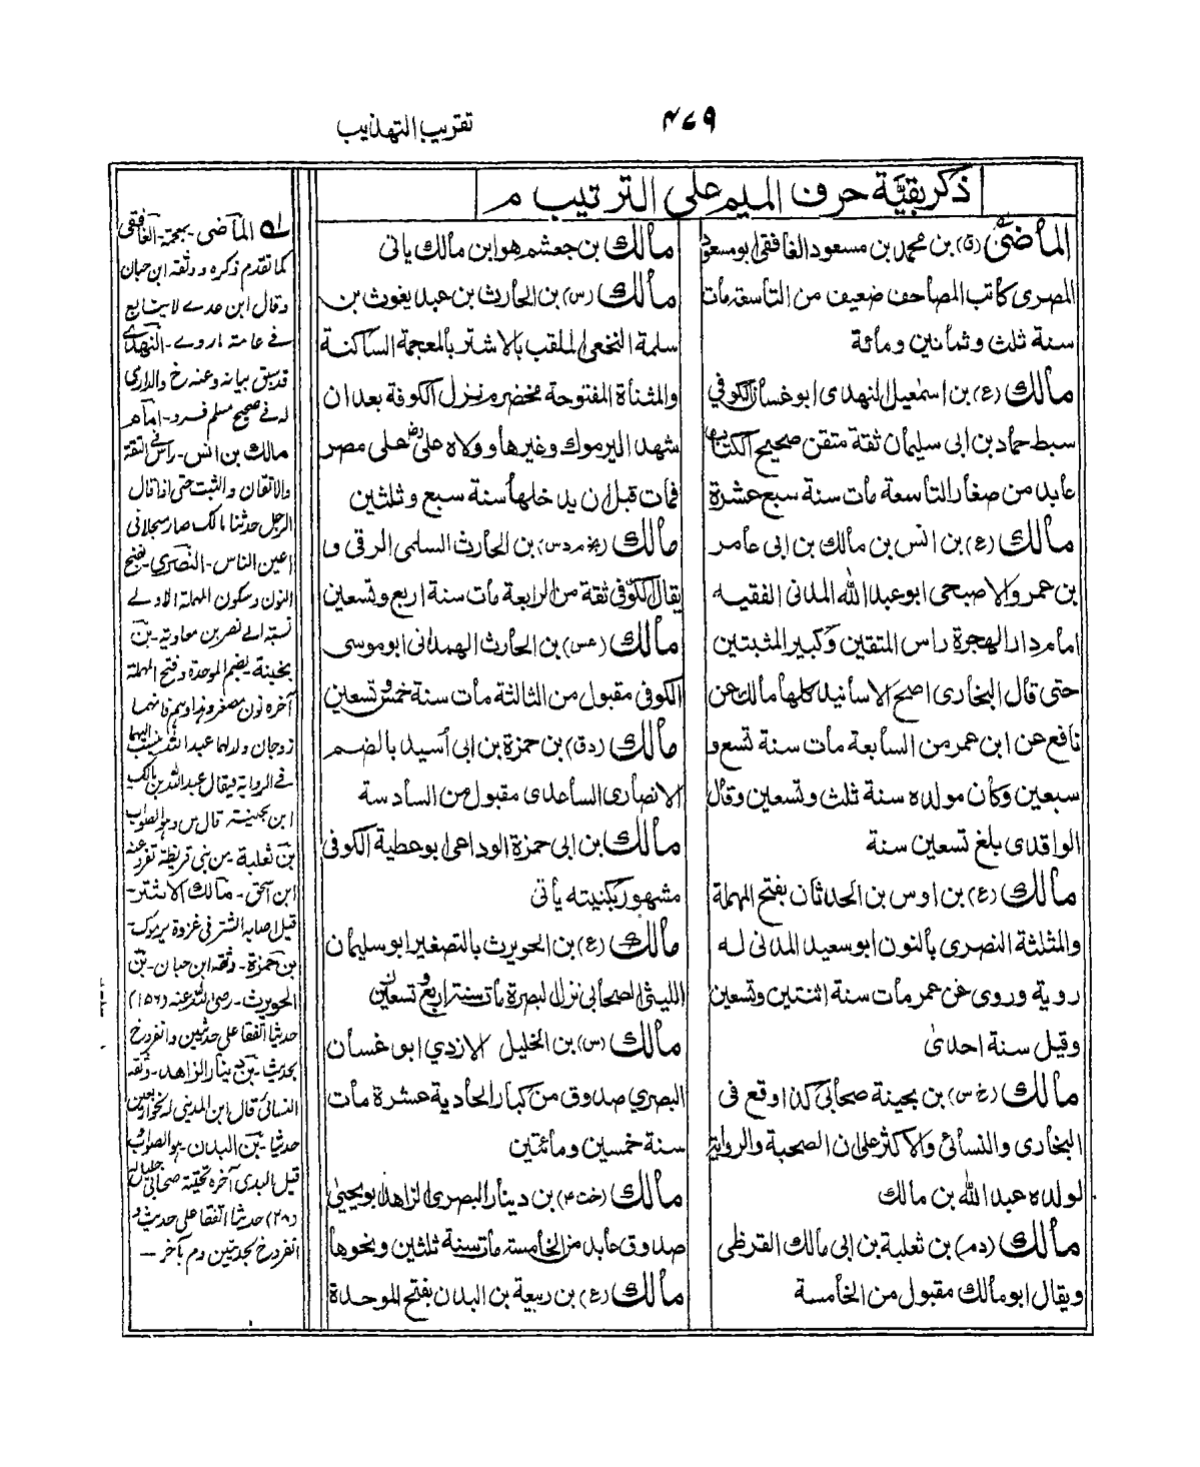 تقريب التهذيب
٤٧٩
ذكر بقيّة حرف الميم على الترتيب م
الماضی (ق) بن محمد بن مسعود الغافقی ابو مسعود
المصری کاتب المصاحف ضعیف من التاسعة مات
سنة ثلث وثمانین ومائة
مالك (ع) بن اسمٰعیل النهدی ابو غسان الکوفي
سبط حماد بن ابی سلیمان ثقة متقن صحیح الکتاب
عابد من صغار التاسعة مات سنة سبع عشرة
مالك (ع) بن انس بن مالك بن ابی عامر
بن عمرو الاصبحی ابو عبد الله المدنی الفقیه
امام دار الهجرة راس المتقین وکبیر المثبتین
حتی قال البخاری اصح الاسانید کلها مالك عن
نافع عن ابن عمر من السابعة مات سنة تسع و
سبعین وکان مولده سنة ثلث وتسعین وقال
الواقدی بلغ تسعین سنة
مالك (ع) بن اوس بن الحدثان بفتح المهملة
والمثلثة النصری بالنون ابو سعید المدنی له
رویة وروی عن عمر مات سنة اثنتین وتسعین
وقیل سنة احدیٰ
مالك (خ س) بن بحینة صحابی کذا وقع فی
البخاری والنسائی والاکثر علی ان الصحبة والروایة
لولده عبد الله بن مالك
مالك (دم) بن ثعلبة بن ابی مالك القرظی
ویقال ابو مالك مقبول من الخامسة
مالك بن جعشم هو ابن مالك یاتی
مالك (س) بن الحارث بن عبد یغوث بن
سلمة النخعی الملقب بالاشتر بالمعجمة الساکنة
والمثناة المفتوحة مخضرم نزل الکوفة بعد ان
شهد الیرموك وغیرها وولاه علی رض علی مصر
فمات قبل ان یدخلها سنة سبع وثلثین
مالك (بخ مد س) بن الحارث السلمی الرقی و
یقال الکوفی ثقة من الرابعة مات سنة اربع وتسعین
مالك (عس) بن الحارث الهمدانی ابو موسی
الکوفی مقبول من الثالثة مات سنة خمس وتسعین
مالك (دق) بن حمزة بن ابی أسید بالضم
الانصاری الساعدی مقبول من السادسة
مالك بن ابی حمزة الوداعی ابو عطیة الکوفی
مشهور بکنیته یأتی
مالك (ع) بن الحویرث بالتصغیر ابو سلیمان
اللیثی الصحابی نزل البصرة مات سنة اربع وتسعین
مالك (س) بن الخلیل الازدي ابو غسان
البصري صدوق من کبار الحادیة عشرة مات
سنة خمسین ومائتین
مالك (خت ۴) بن دینار البصری الزاهد ابو یحییٰ
صدوق عابد من الخامسة مات سنة ثلثین ونحوها
مالك (ع) بن ربیعة بن البدن بفتح الموحدة
له الماضی - بمعجمة - الغافقی
کما تقدم ذکره ووثقه ابن حبان
وقال ابن عدے لا یتابع
فے عامة ما روے - النهدے
قد سبق بیانه وعنه خ والداری
له فے صحیح مسلم فرد - امام
مالك بن انس - راس فی الثقة
والاتقان والثبت حتی اذا قال
الرجل حدثنا مالك صار سجلا فی
اعین الناس - النصری - بفتح
النون وسکون المهملة الاولے
نسبة الے نصر بن معاویة - بن
بحینة - بضم الموحدة وفتح المهملة
آخره نون مصغر
زوجان ولدلها عبد الله نسب الیهما
فے الروایة فیقال عبد الله بن مالك
ابن بحینة قال س وهو الصواب
بن ثعلبة - من بنی قریظة تفرد عنه
ابن اسحق - مالك الاشتر -
قیل اصابه الشتر فی غزوة یرموك
بن حمزة - وثقه ابن حبان - بن
الحویرث - رضی الله عنه (۱۵)
حدیثا اتفقا علی حدیثین وانفرد خ
بحدیث - بن دینار الزاهد - وثقه
النسائی قال ابن المدینی له نحو اربعین
حدیثا - بن البدن - هو الصواب
قیل البدی آخره تحتیة صحابی جلیل له
(۲۸) حدیثا اتفقا علی حدیث و
انفرد خ بحدیثین وم بآخر —